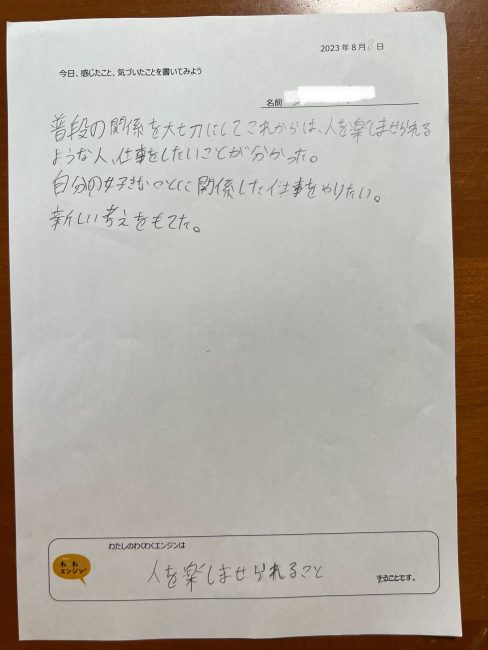 2023年8月 日
今日、感じたこと、気づいたことを書いてみよう
名前
普段の関係を大切にしてこれからは、人を楽しませられれる
ような人、仕事をしたいことが分かった。
自分の好きなことに関係した仕事をやりたい。
新しい考えをもてた。
わたしのわくわくエンジンは
わくわく
エンジン
人を楽しませられれること
することです。